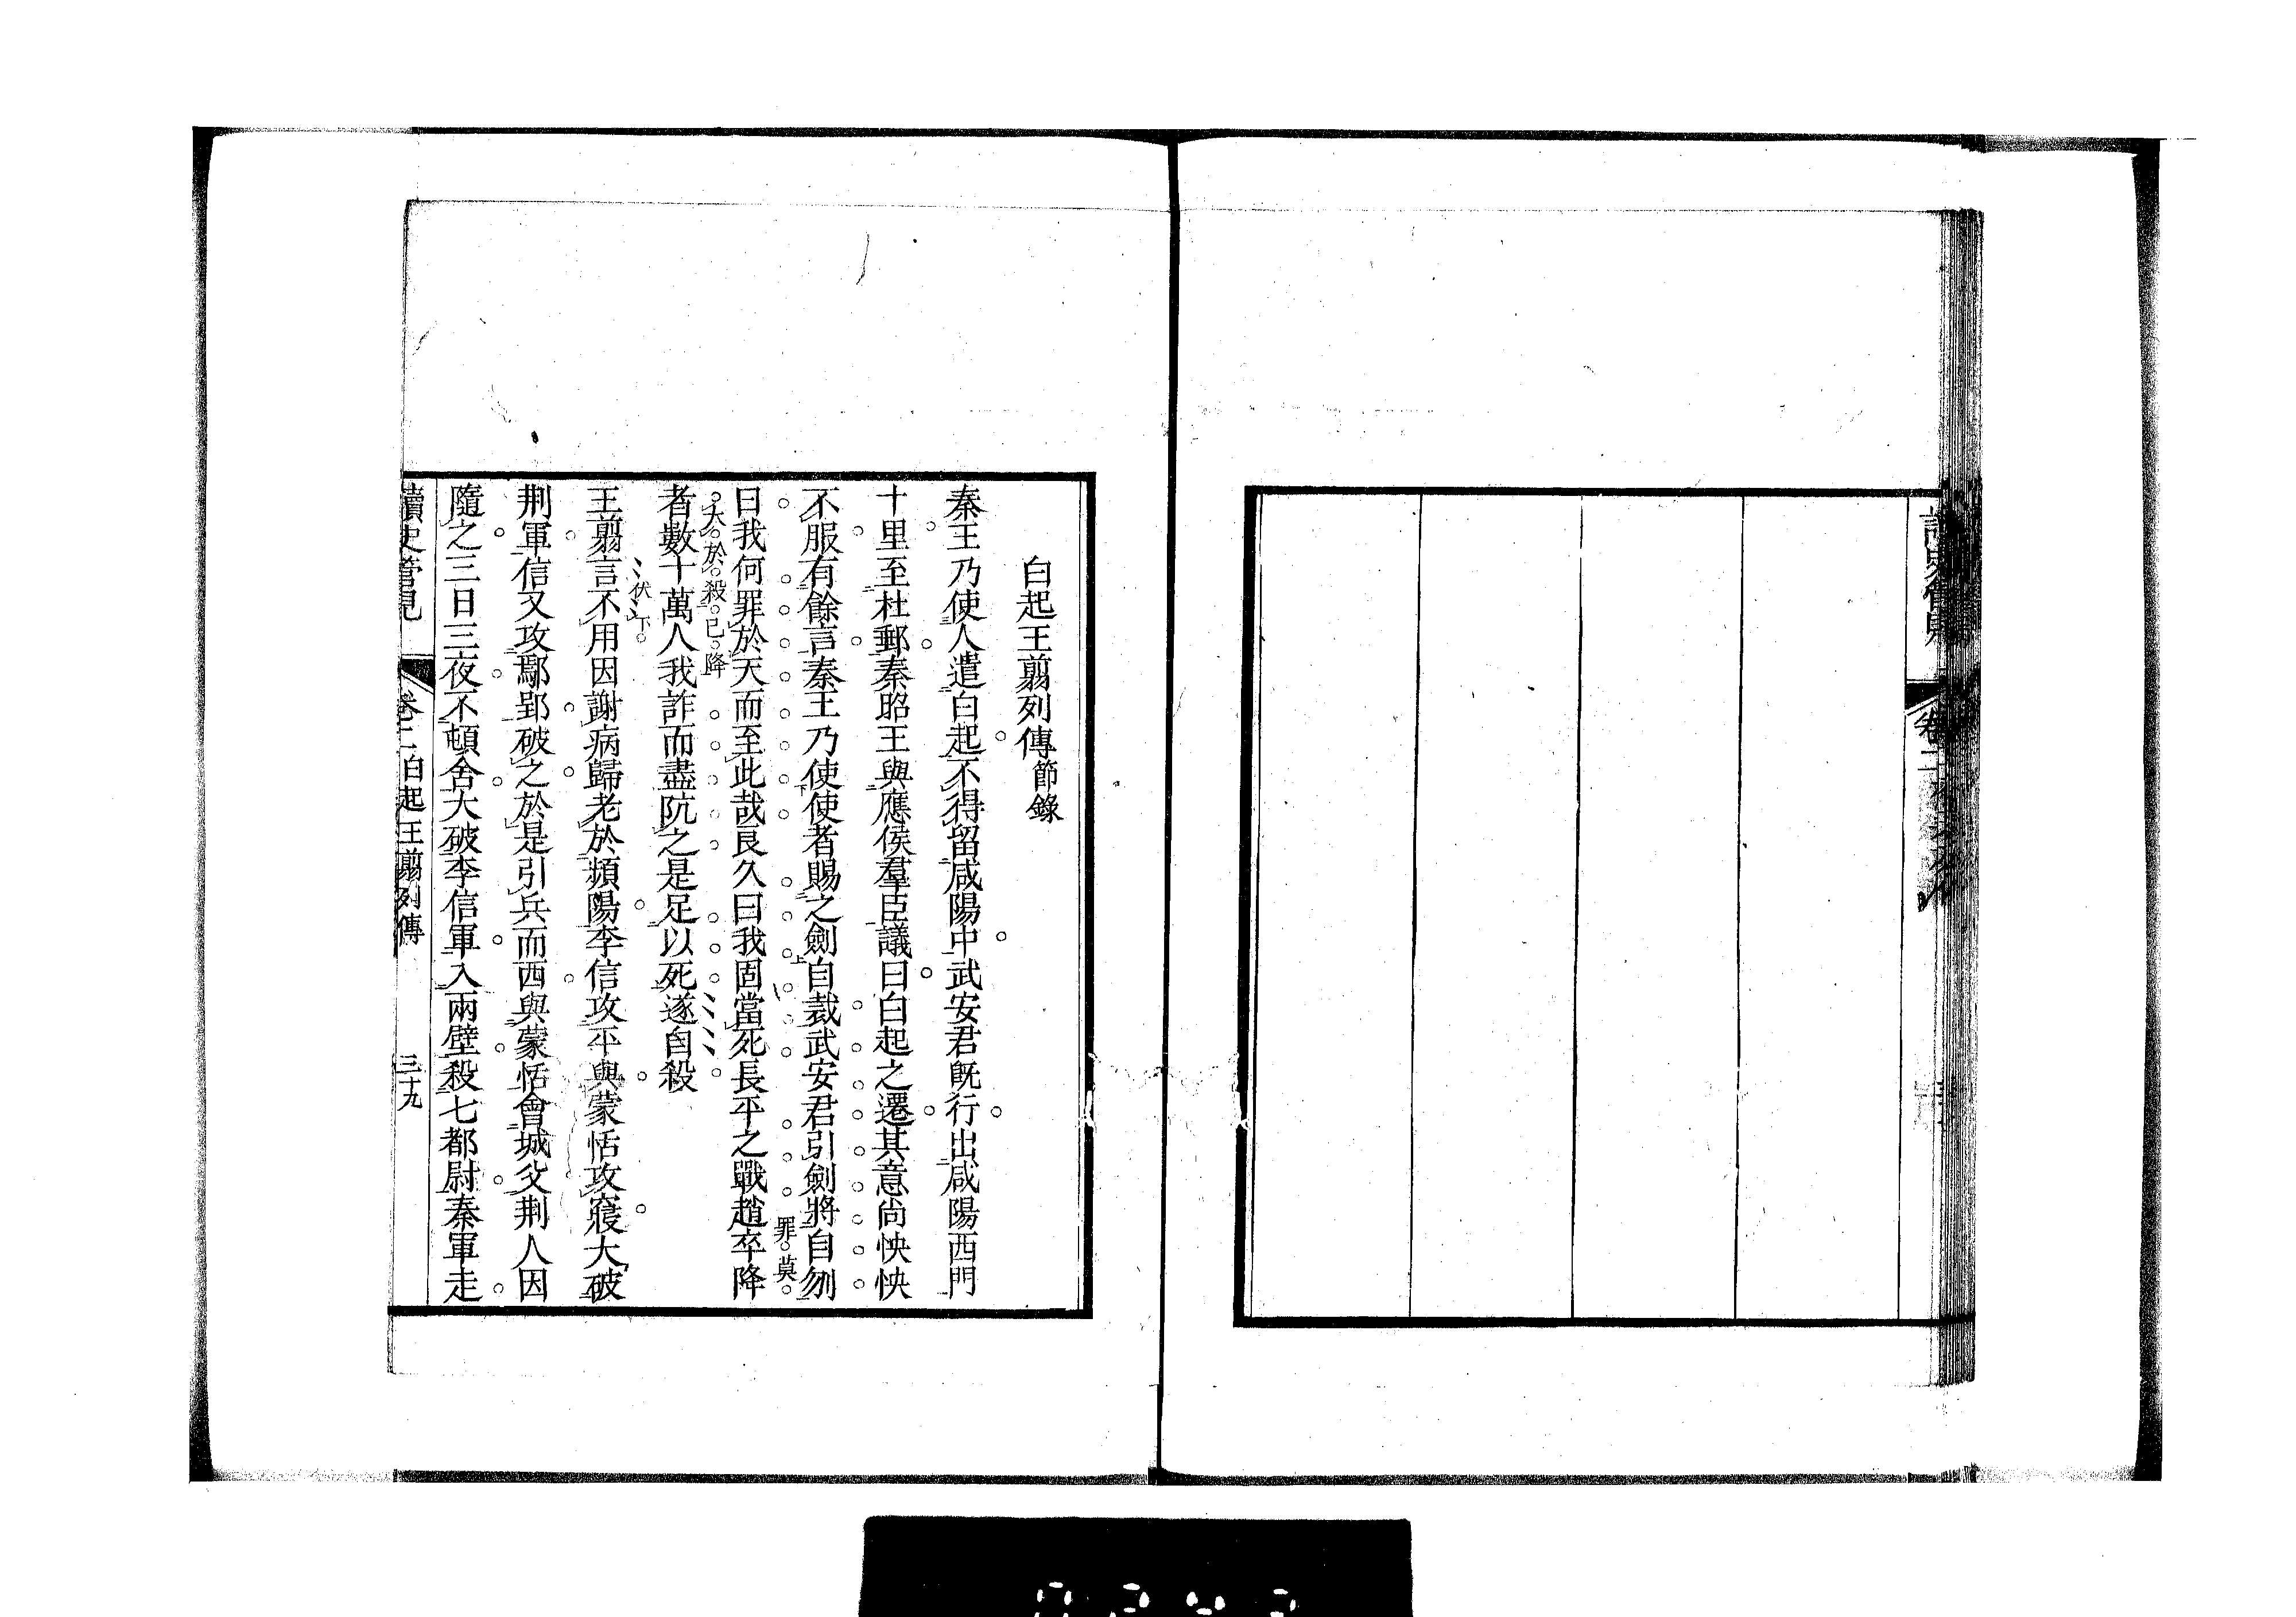 白起王翦列傳 節錄
秦王乃使人遣白起不得留咸陽中武安君旣行出咸陽西門
十里至杜郵秦昭王與應侯羣臣議曰白起之遷其意尚怏怏
不服有餘言秦王乃使使者賜之劍自裁武安君引劍將自刎
罪莫
曰我何罪於天而至此哉良久曰我固當死長平之戰趙卒降
大於殺已降
者數十萬人我詐而盡阬之是足以死遂自殺
伏下
王翦言不用因謝病歸老於頻陽李信攻平與蒙恬攻寢大破
荆軍信又攻鄢郢破之於是引兵而西與蒙恬會城父荆人因
隨之三日三夜不頓舍大破李信軍入兩壁殺七都尉秦軍走
讀史管見
卷二 白起王翦列傳
三十九